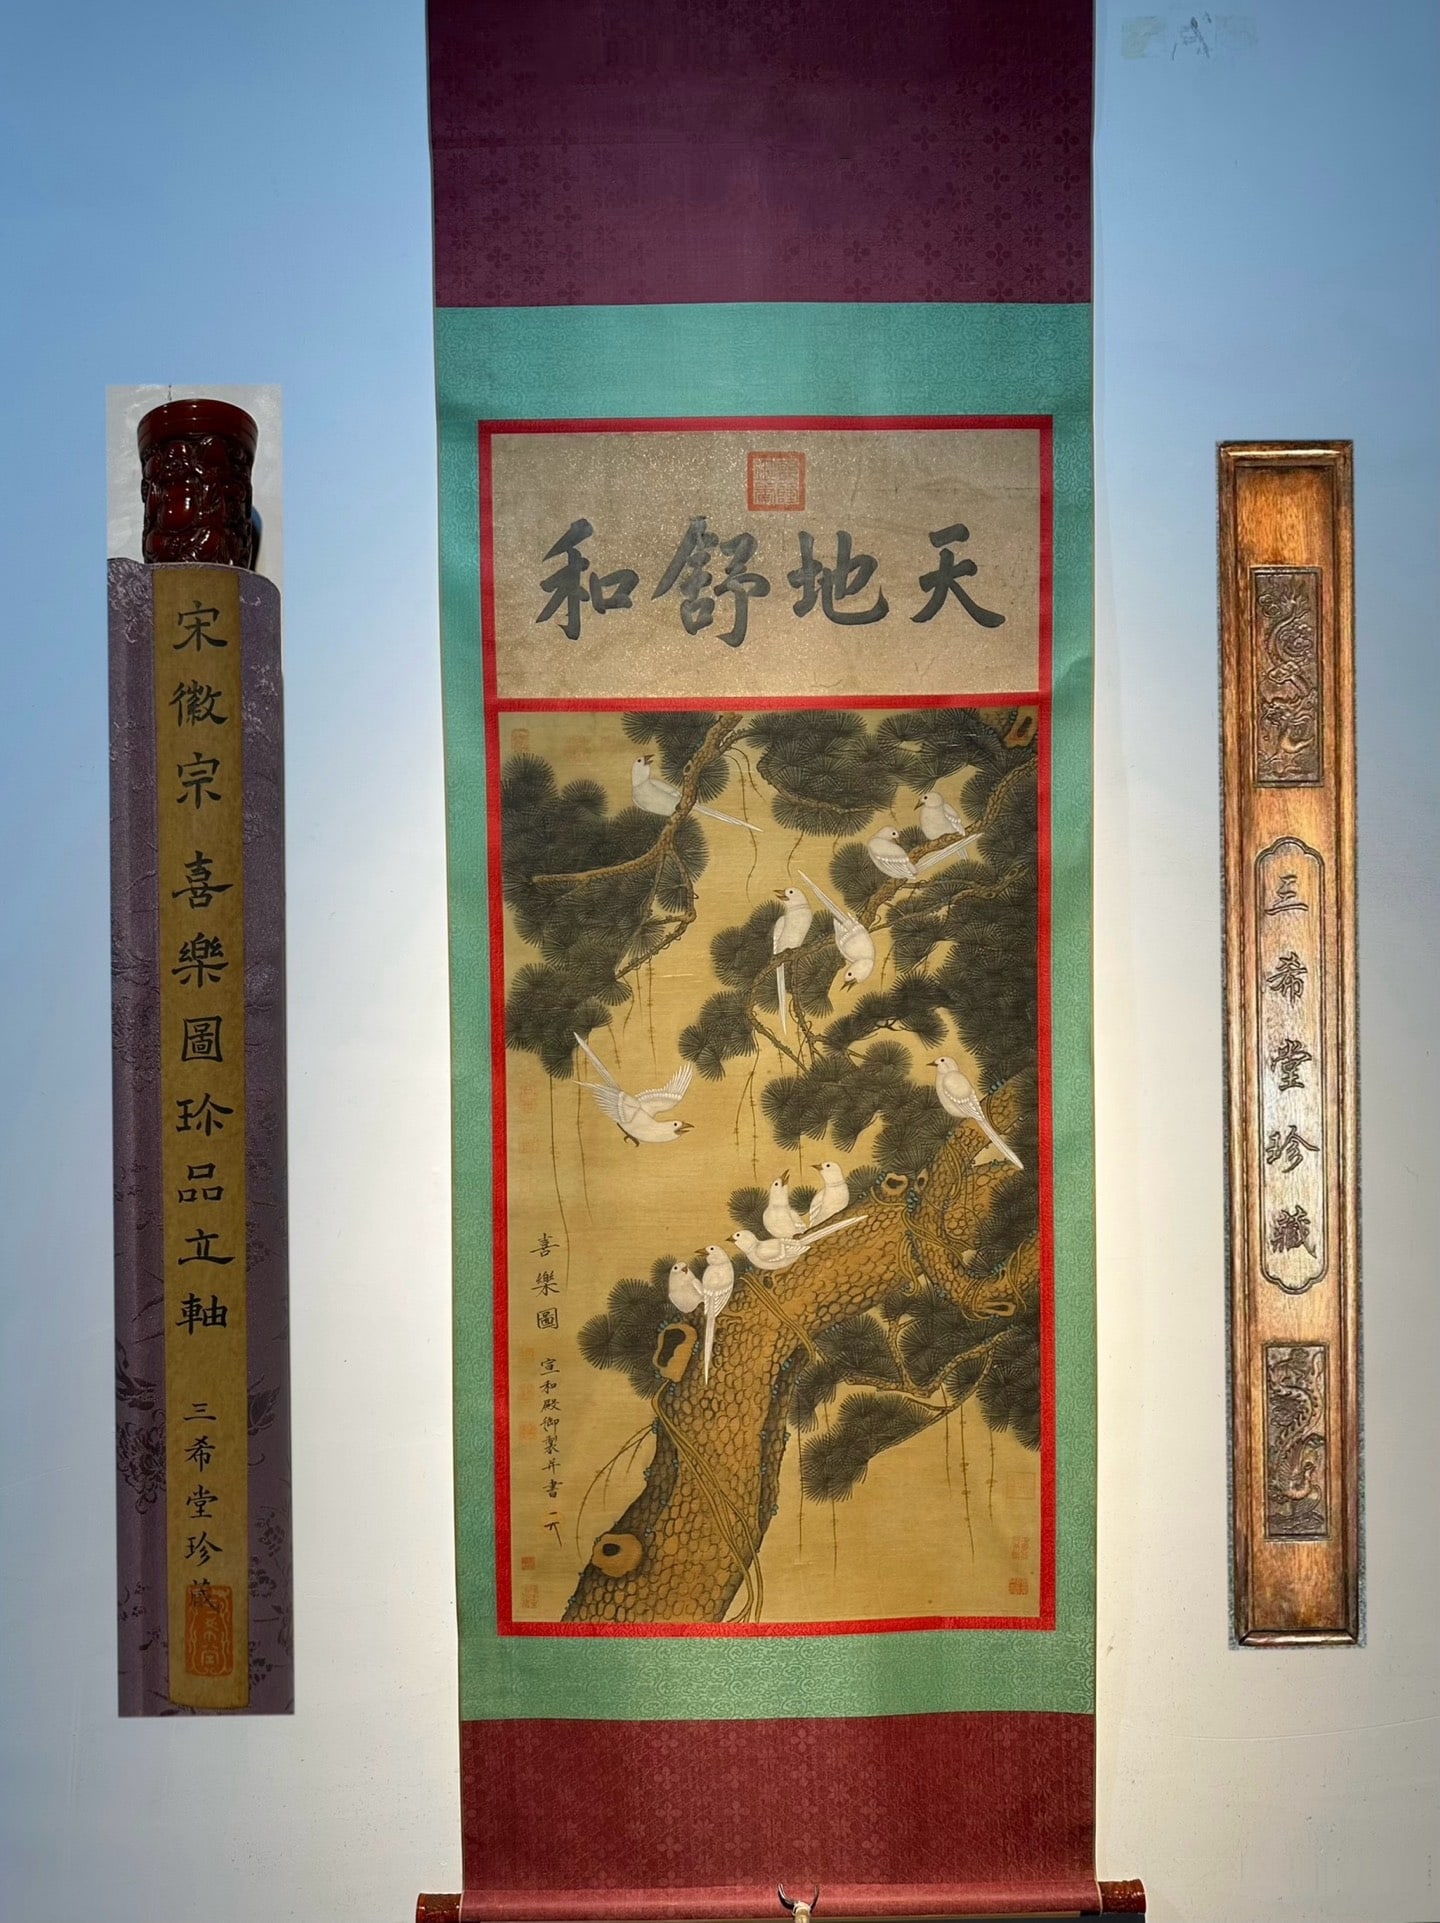 天地舒和
喜樂圖
宣和殿御製并書
宋徽宗喜樂圖珍品立軸
三希堂珍藏
三希堂珍藏